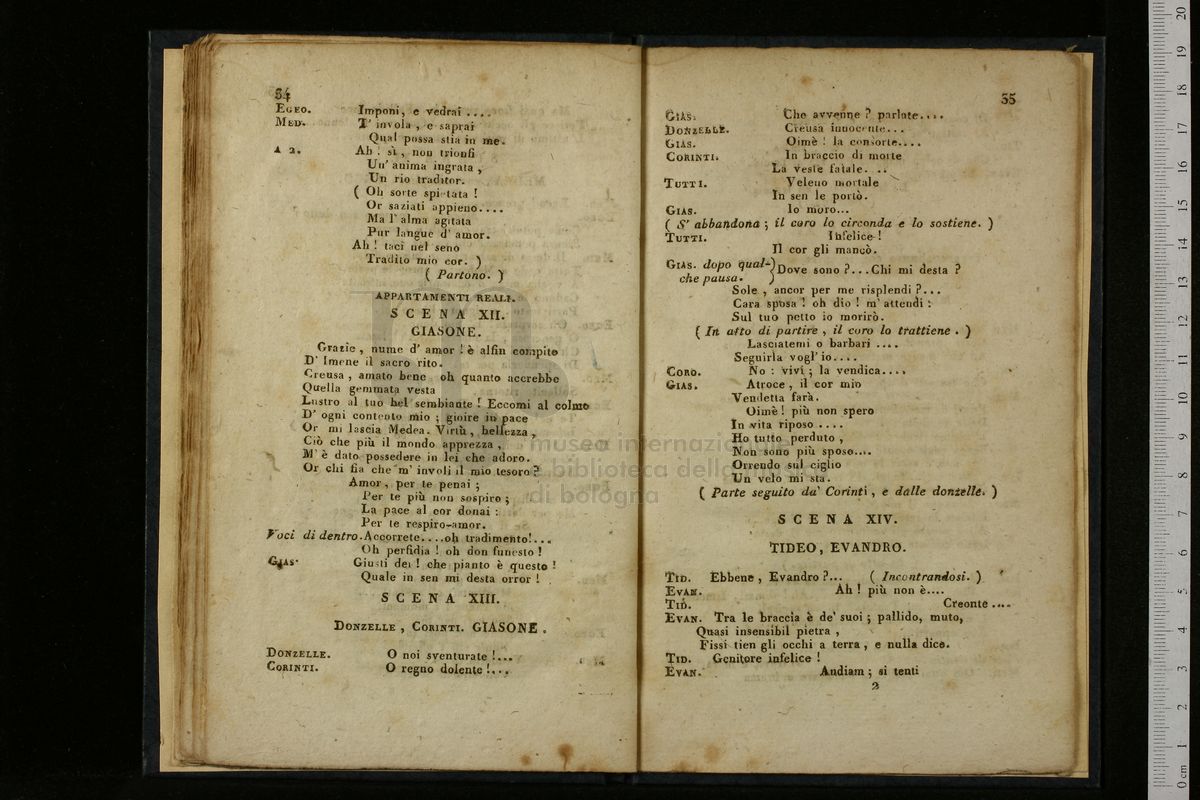 34
EGEO. Imponi, e vedrai ....
MED. T' invola, e saprai
Qual possa stia in me.
A 2. Ah! sì, non trionfi
Un' anima ingrata,
Un rio traditor.
( Oh sorte spietata!
Or saziati appieno....
Ma l' alma agitata
Pur langue d' amor.
Ah! taci nel seno
Tradito mio cor. )
( Partono. )
APPARTAMENTI REALI.
SCENA XII.
GIASONE.
Grazie, nume d' amor! è alfin compito
D' Imene il sacro rito.
Creusa, amato bene oh quanto accrebbe
Quella gemmata vesta
Lustro al tuo bel sembiante! Eccomi al colmo
D' ogni contento mio; gioire in pace
Or mi lascia Medea. Virtù, bellezza,
Ciò che più il mondo apprezza,
M' è dato possedere in lei che adoro.
Or chi fia che m' involi il mio tesoro?
Amor, per te penai;
Per te più non sospiro;
La pace al cor donai:
Per te respiro amor.
Voci di dentro. Accorrete....oh tradimento!...
Oh perfidia! oh don funesto!
GIAS. Giusti dei! che pianto è questo!
Quale in sen mi desta orror!
SCENA XIII.
DONZELLE, CORINTI. GIASONE.
DONZELLE. O noi sventurate!...
CORINTI. O regno dolente!...
35
GIAS. Che avvenne? parlate....
DONZELLE. Creusa innocente...
GIAS. Oimè! la consorte....
CORINTI. In braccio di morte
La veste fatale...
TUTTI. Veleno mortale
In sen le portò.
GIAS. Io moro...
( S' abbandona; il coro lo circonda e lo sostiene. )
TUTTI. Infelice!
Il cor gli mancò.
GIAS. dopo qual-
che pausa. } Dove sono?...Chi mi desta?
Sole, ancor per me risplendi?...
Cara sposa! oh dio! m' attendi:
Sul tuo petto io morirò.
( In atto di partire, il coro lo trattiene. )
Lasciatemi o barbari ....
Seguirla vogl' io....
CORO. No: vivi; la vendica....
GIAS. Atroce, il cor mio
Vendetta farà.
Oimè! più non spero
In vita riposo ....
Ho tutto perduto,
Non sono più sposo....
Orrendo sul ciglio
Un velo mi sta.
( Parte seguito da' Corinti, e dalle donzelle. )
SCENA XIV.
TIDEO, EVANDRO.
TID. Ebbene, Evandro?... ( Incontrandosi. )
EVAN. Ah! più non è....
TID. Creonte ....
EVAN. Tra le braccia è de' suoi; pallido, muto,
Quasi insensibil pietra,
Fissi tien gli occhi a terra, e nulla dice.
TID. Genitore infelice!
EVAN. Andiam; si tenti
2
museo internazionale
e biblioteca della musica
di bologna
0 cm 1 2 3 4 5 6 7 8 9 10 11 12 13 14 15 16 17 18 19 20